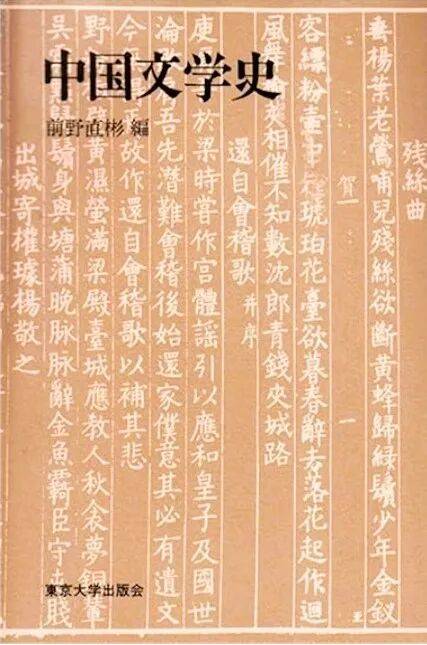 中国文学史
前野直彬 編
残絲曲
垂楊葉老鶯哺兒残絲欲断黄蜂歸緑鬢少年金釵
客縹粉壺中琥珀花臺欲暮春辭去落花起作迴
風舞相催不知數沈郎青錢夾城路
還自會稽歌 并序
庾於梁時嘗作宮體謠引以應和皇子及國世
淪吾先潛難會稽後始還家僕意其必有遺文
今故作還自會稽歌以補其悲
野黄濕螢滿梁殿臺城應教人秋衾夢銅輦
吳鬢身與塘蒲晚脉脉辭金魚羈臣守賤
出城寄權璩楊敬之
賀一
一
東京大学出版会